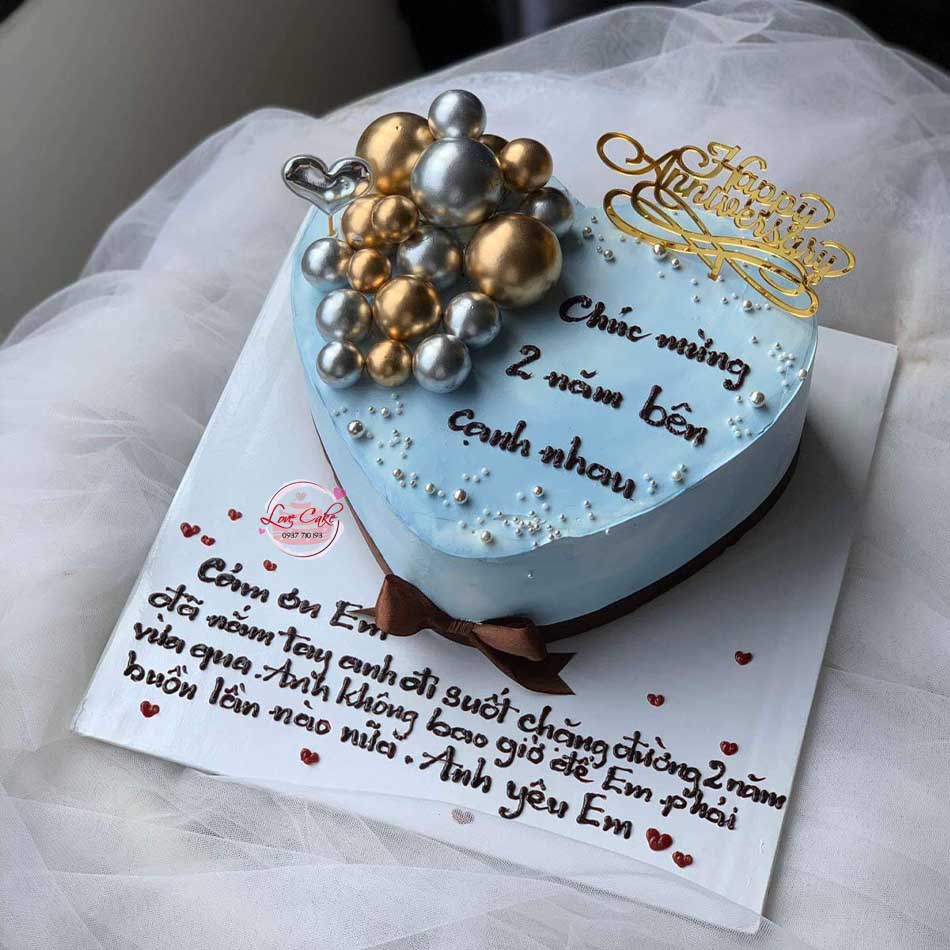 Happy
Anniversary
Chúc mừng
2 năm bên
cạnh nhau
Love Cake
0937 710 193
Cảm ơn Em
đã nắm tay anh đi suốt chặng đường 2 năm
vừa qua. Anh không bao giờ để Em phải
buồn lần nào nữa. Anh yêu Em